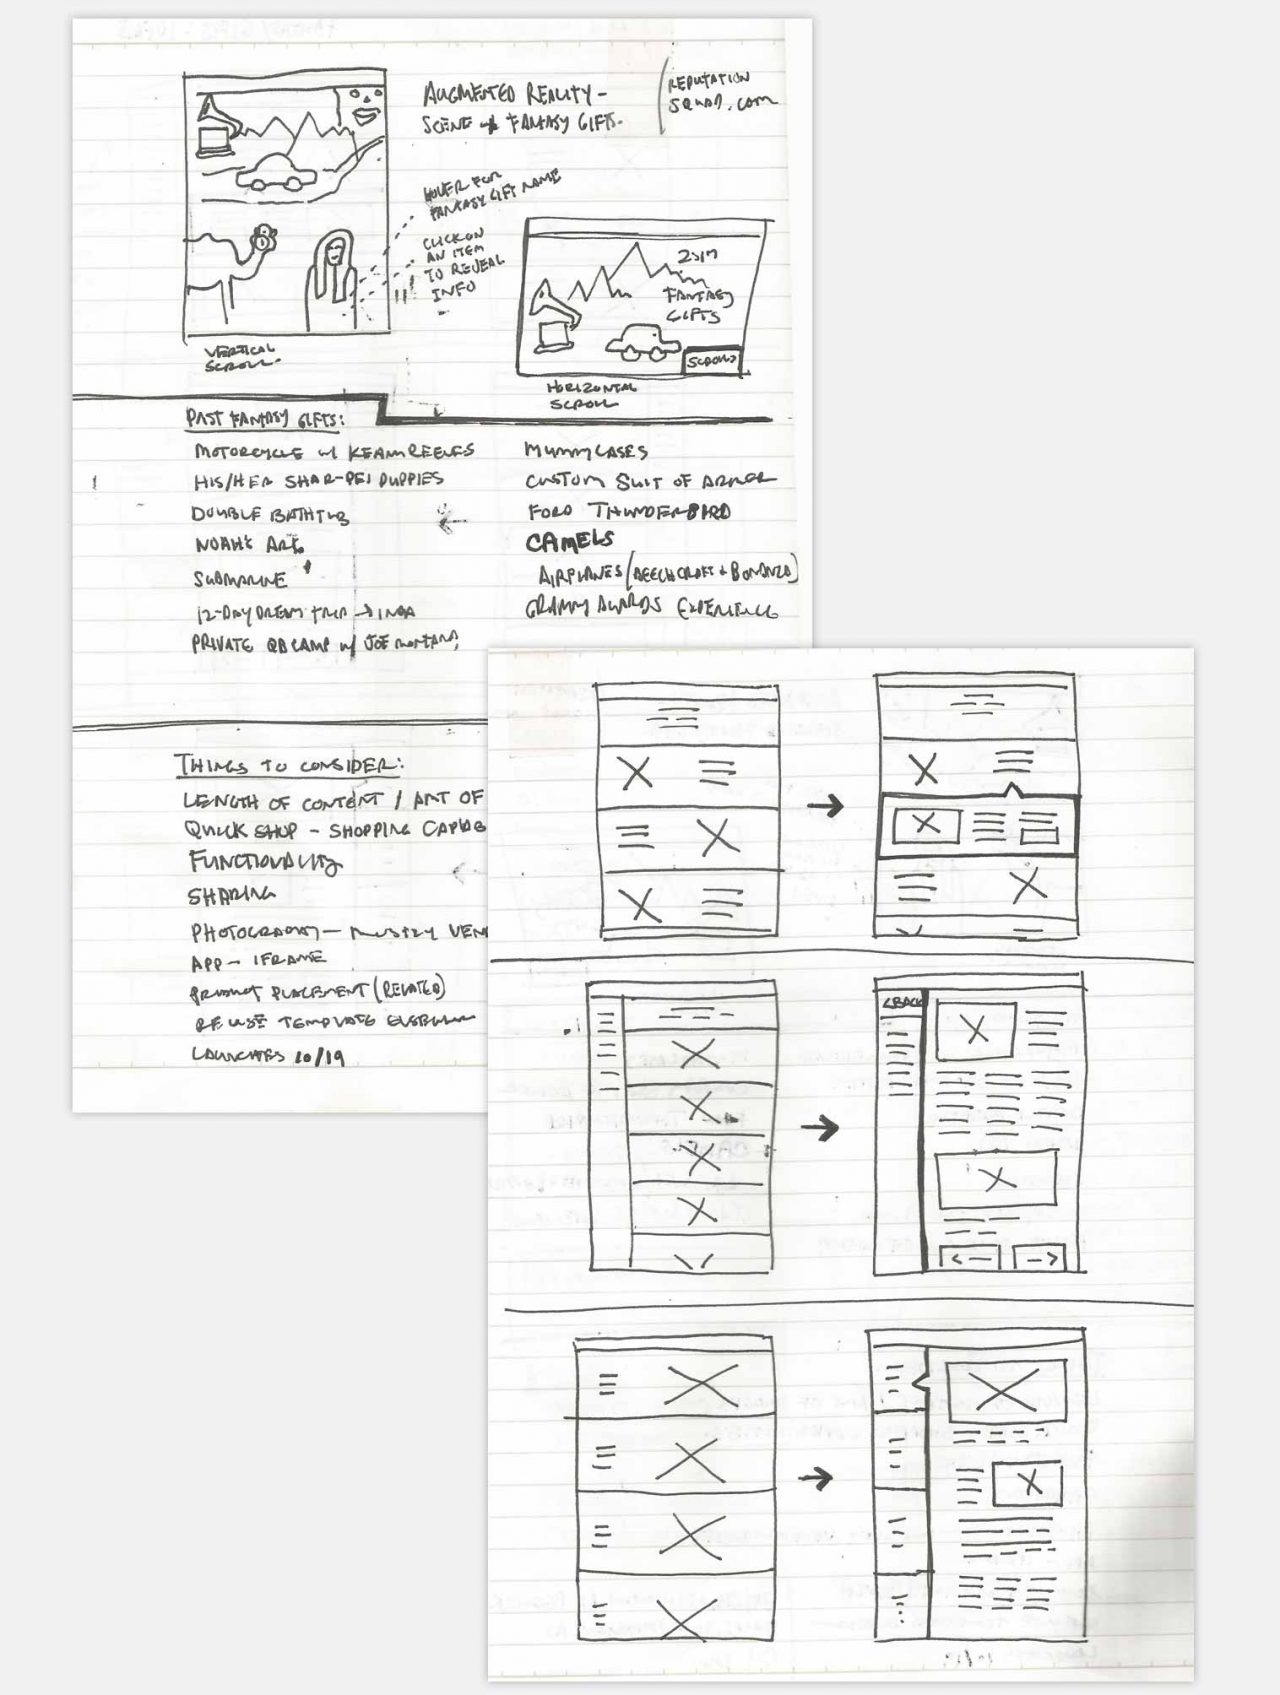 AUGMENTED REALITY -
SCENE w/ FANTASY GIFTS.
REPUTATION
SQUAD.COM
HOVER FOR
FANTASY GIFT NAME
CLICK ON
AN ITEM
TO REVEAL
INFO
VERTICAL
SCROLL.
2017
FANTASY
GIFTS
SCROLL>
HORIZONTAL
SCROLL
PAST FANTASY GIFTS:
MOTORCYCLE w/ KEANU REEVES
HIS/HER SHAR-PEI PUPPIES
DOUBLE BATHTUB
NOAH'S ARK
SUBMARINE
12-DAY DREAM TRIP → INDIA
PRIVATE QB CAMP w/ JOE MONTANA
MUMMY CASES
CUSTOM SUIT OF ARMOR
FORD THUNDERBIRD
CAMELS
AIRPLANES (BEECHCRAFT + BONANZA)
GRAMMY AWARDS EXPERIENCE
THINGS TO CONSIDER:
LENGTH OF CONTENT / AMT OF
QUICK SHOP - SHOPPING CAPAB
FUNCTIONALITY
SHARING
PHOTOGRAPHY - MOSTLY VEN
APP - IFRAME
PRODUCT PLACEMENT (RELATED)
RE USE TEMPLATE
LAUNCHES 10/19
<BACK